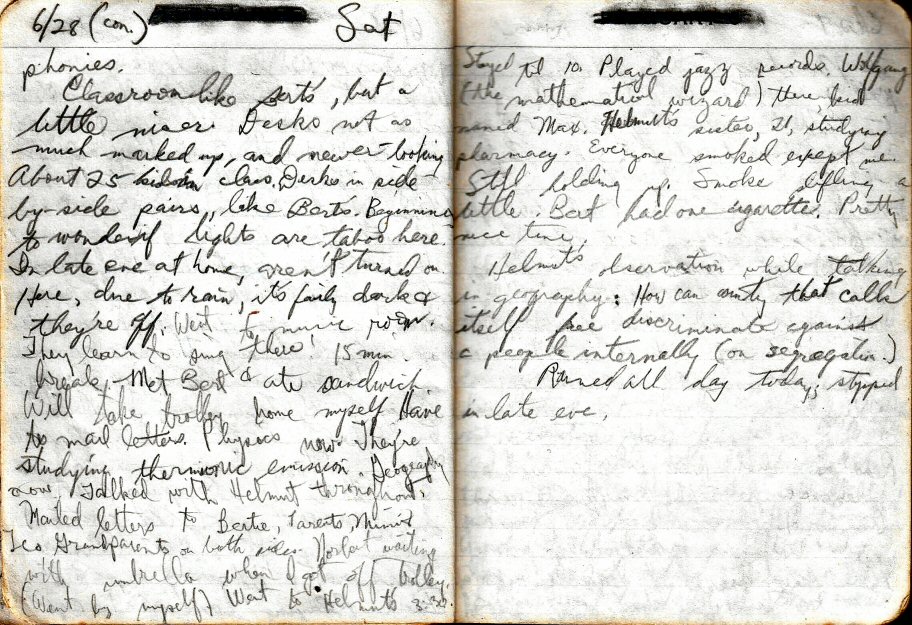 6/28 (con.) Sat
phonies.
Classroom like Bert's, but a
little nicer. Desks not as
much marked up, and newer-looking
About 25 in class. Desks in side-
by-side pairs, like Bert's. Beginning
to wonder if lights are taboo here.
In late eve at home, aren't turned on.
Here, due to rain, it's fairly dark &
they're off. Went to music room.
They learn to sing there! 15 min.
break. Met Bert & ate sandwich
Will take trolley home myself Have
to mail letters. Physics now. They're
studying thermionic emission. Geography
now. Talked with Helmut throughout.
Mailed letters to Bertie, Parents, Mimi &
Grandparents on both sides. Norbert waiting
with umbrella when I got off trolley.
(Went by myself) Went to Helmut's 3:30.
Stayed til 10. Played jazz records. Wolfgang
(the mathematical wizard) there,
named Max. Helmut's sister, 21, studying
pharmacy. Everyone smoked except me.
Still holding up. Smoke a
little. Bert had one cigarette. Pretty
nice time.
Helmut's observation while talking
in geography: How can country that calls
itself free discriminate against
a people internally (on segregation.)
Rained all day today; stopped
in late eve.